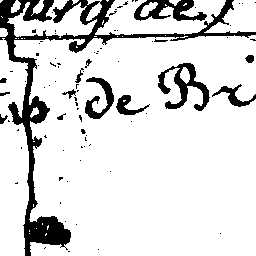 ourg de.)
p. de Bri